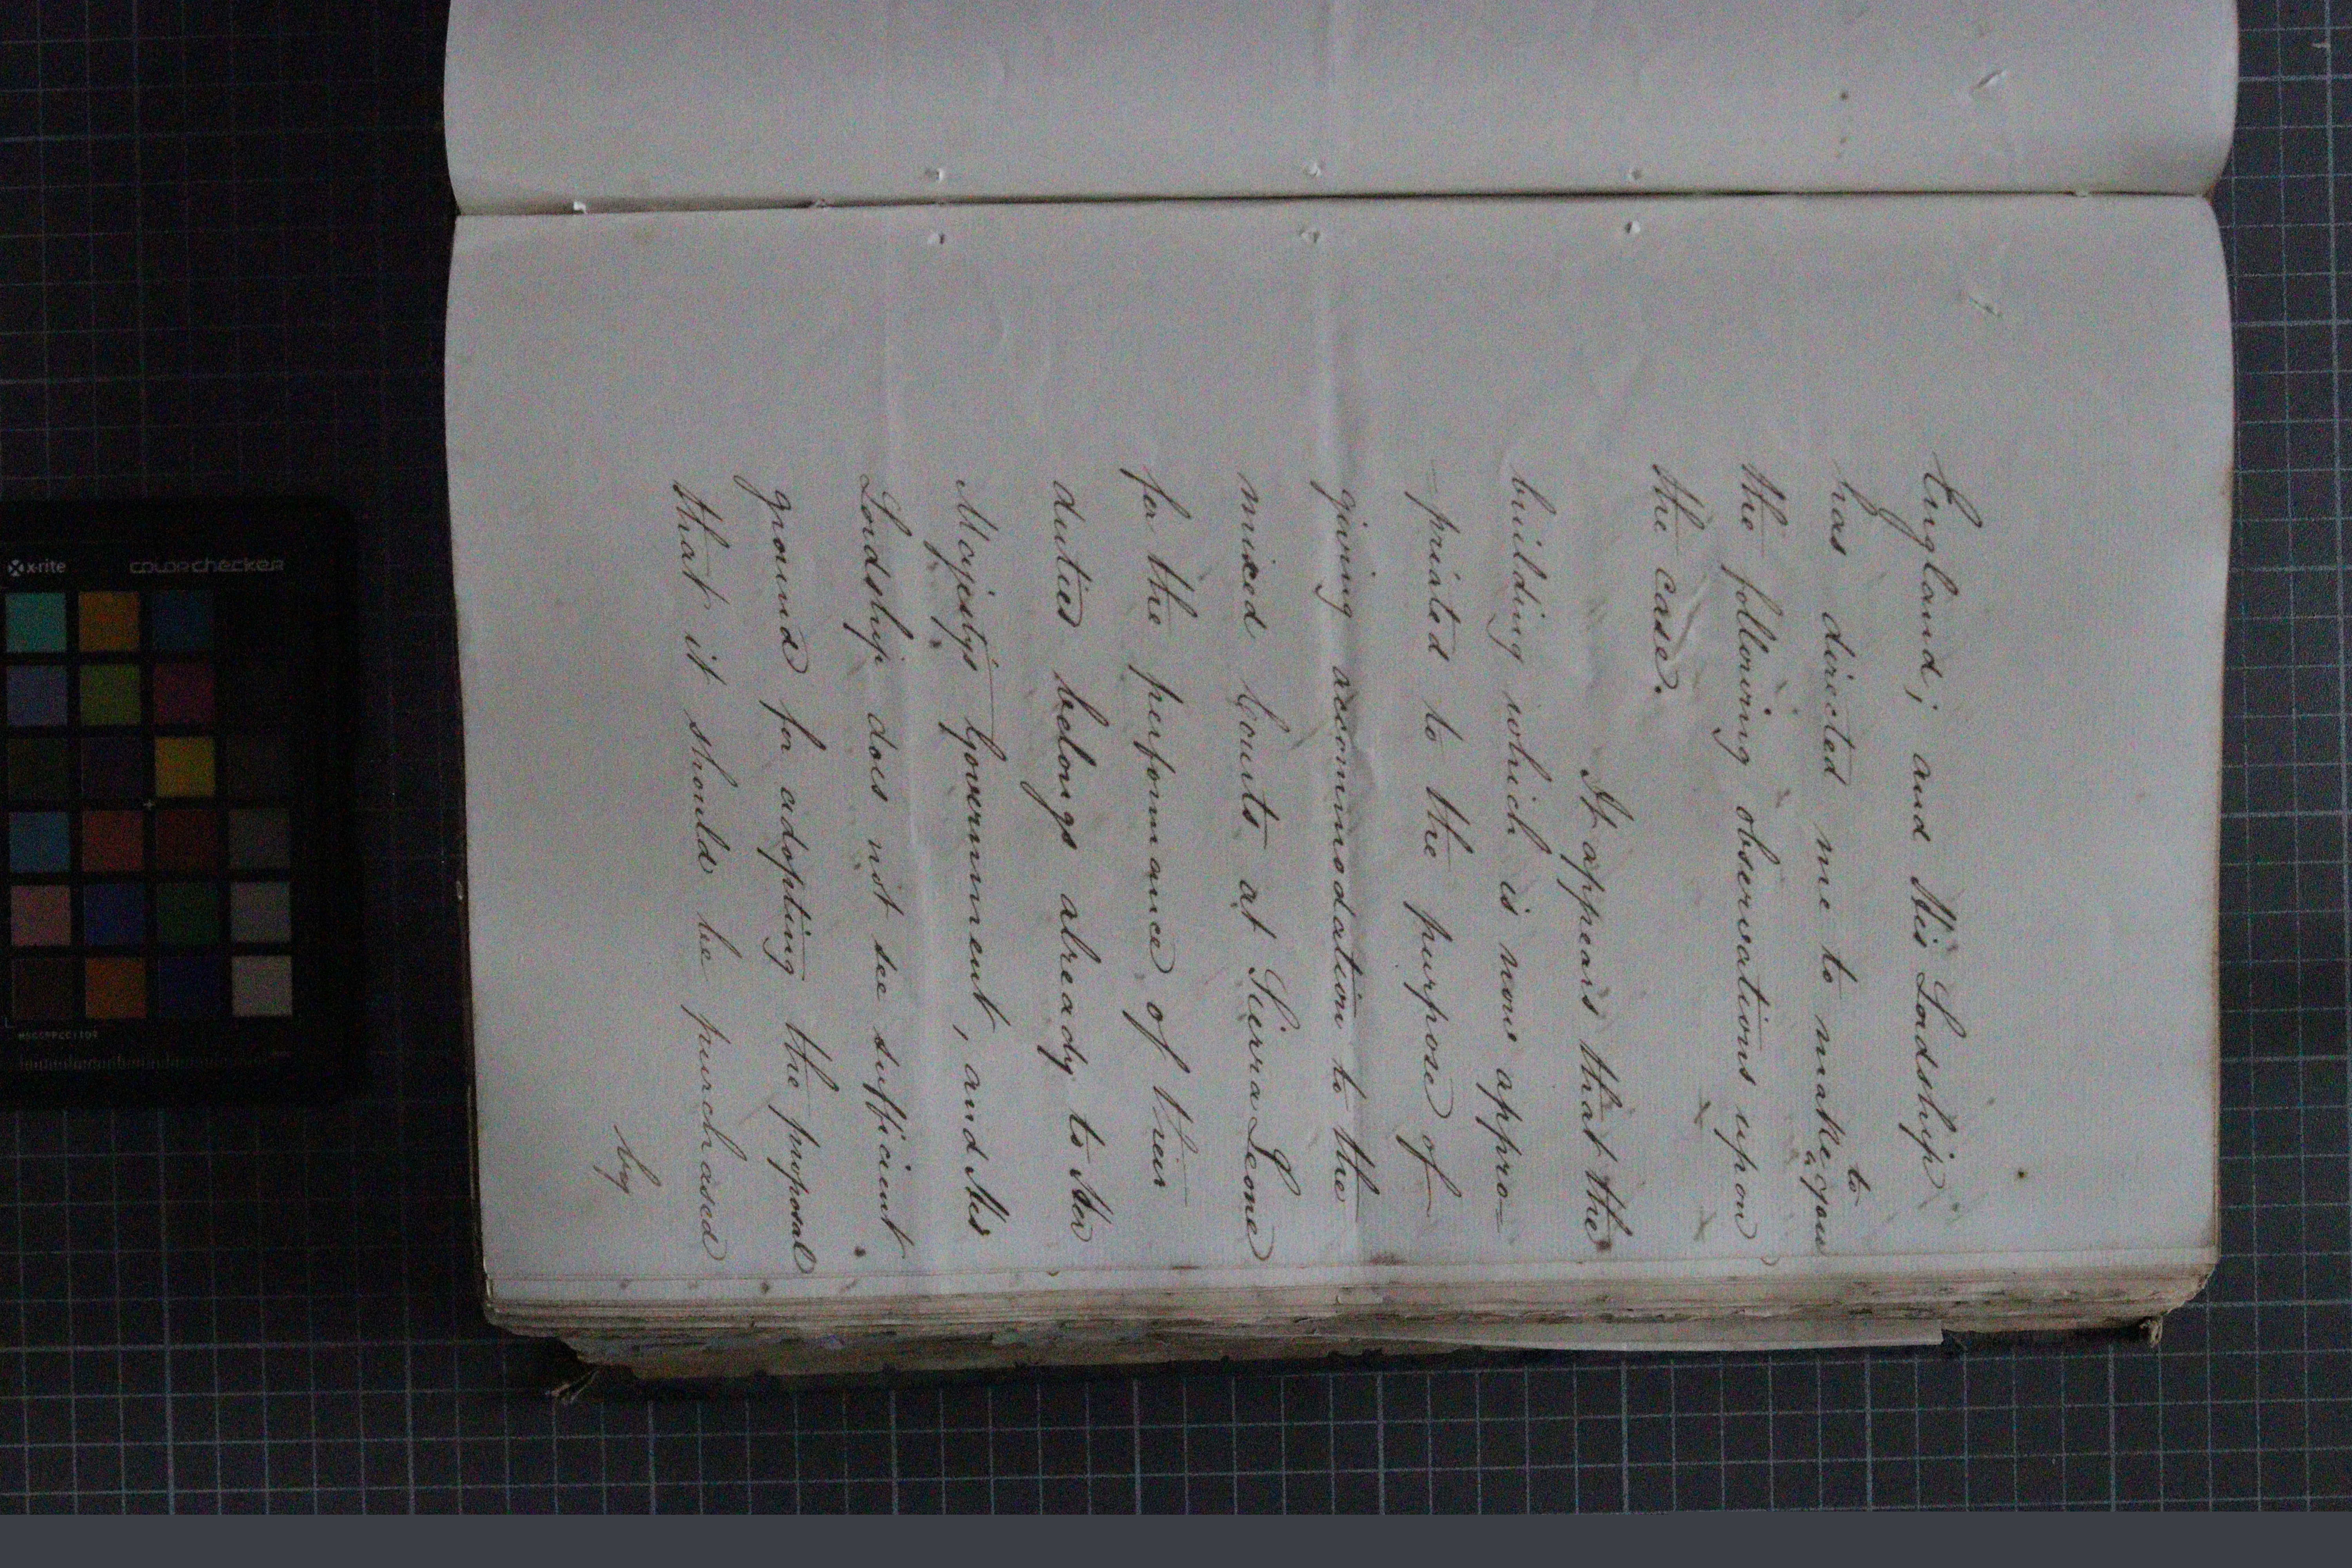 England; and His Lordship
has directed me to make to you
the following observations upon
the case.
It appears that the
building which is now appro-
priated to the purpose of
giving accommodation to the
mixed Courts at Sierra Leone
for the performance of their
duties belongs already to Her
Majesty's Government, and His
Lordship does not see sufficient
ground for adopting the proposal
that it should be purchased
by
x-rite
colorchecker